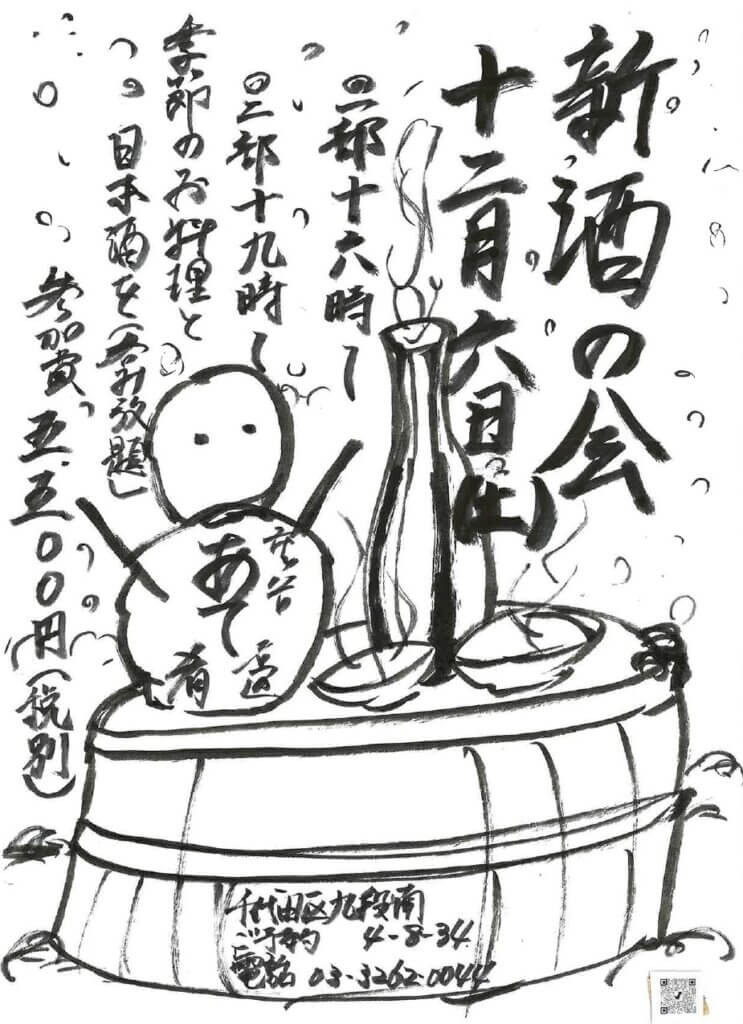 新酒の会
十二月六日(土)
◎一部十六時〜
◎二部十九時〜
季節のお料理と
日本酒を(呑み放題)
参加費 五.五〇〇円(税別)
あて
肴
千代田区九段南
4-8-34
ご予約
電話 03-3262-0044